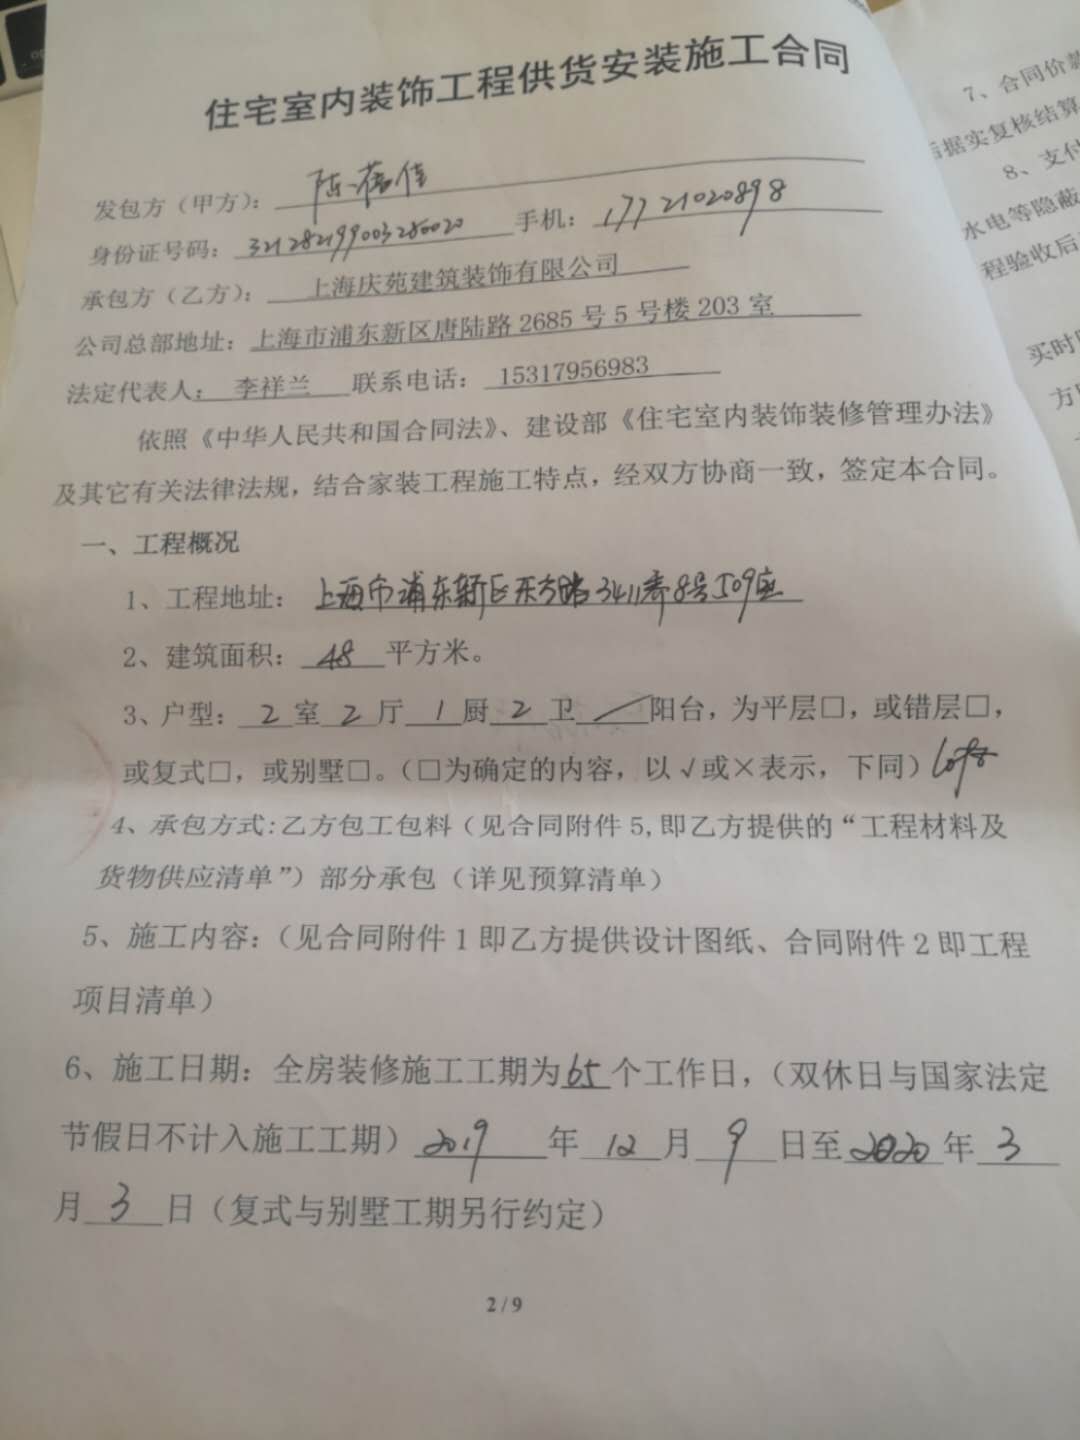 住宅室内装饰工程供货安装施工合同
发包方（甲方）：陈蓓佳
身份证号码：321282199003280020 手机：17721020898
承包方（乙方）：上海庆苑建筑装饰有限公司
公司总部地址：上海市浦东新区唐陆路 2685 号 5 号楼 203 室
法定代表人：李祥兰 联系电话：15317956983
依照《中华人民共和国合同法》、建设部《住宅室内装饰装修管理办法》
及其它有关法律法规，结合家装工程施工特点，经双方协商一致，签定本合同。
一、工程概况
1、工程地址：上海市浦东新区东方路3411弄8号509室
2、建筑面积：48平方米。
3、户型：2室2厅1厨2卫／阳台，为平层□，或错层□，
或复式□，或别墅□。（□为确定的内容，以√或×表示，下同）loft
4、承包方式：乙方包工包料（见合同附件 5，即乙方提供的“工程材料及
货物供应清单”）部分承包（详见预算清单）
5、施工内容：（见合同附件 1 即乙方提供设计图纸、合同附件 2 即工程
项目清单）
6、施工日期：全房装修施工工期为65个工作日，（双休日与国家法定
节假日不计入施工工期）2019年12月9日至2020年3
月3日（复式与别墅工期另行约定）
2/9
7、合同价款
据实复核结算
8、支付
水电等隐蔽
程验收后
买时
方